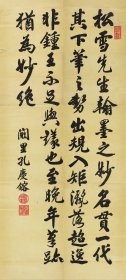 松雪先生翰墨之妙名貫一代
其下筆之勢出規入矩瀟落超逸
非鍾王不足與議也至晚年筆跡
猶為妙絕
闕里孔慶鎔